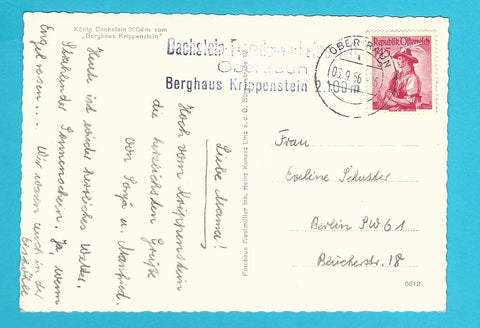 König Dachstein 3004 m vom
„Berghaus Krippenstein"
Dachstein
Obertraun
Berghaus Krippenstein 2.100 m
OBERTRAUN
Republik Österreich
Liebe Mama!
Hoch vom Krippenstein
die herzlichsten Grüße
von Sonja u. Manfred.
Heute ist wieder herrliches Wetter.
Strahlender Sonnenschein. Ja, wenn
Engel reisen... Wir waren auch in der
Eishöhle
Fotohaus Westmüller Inh. Heinz Kunerz Linz a. d. D.
Frau
Eveline Schuster
Berlin SW 61
Blücherstr. 18
5612